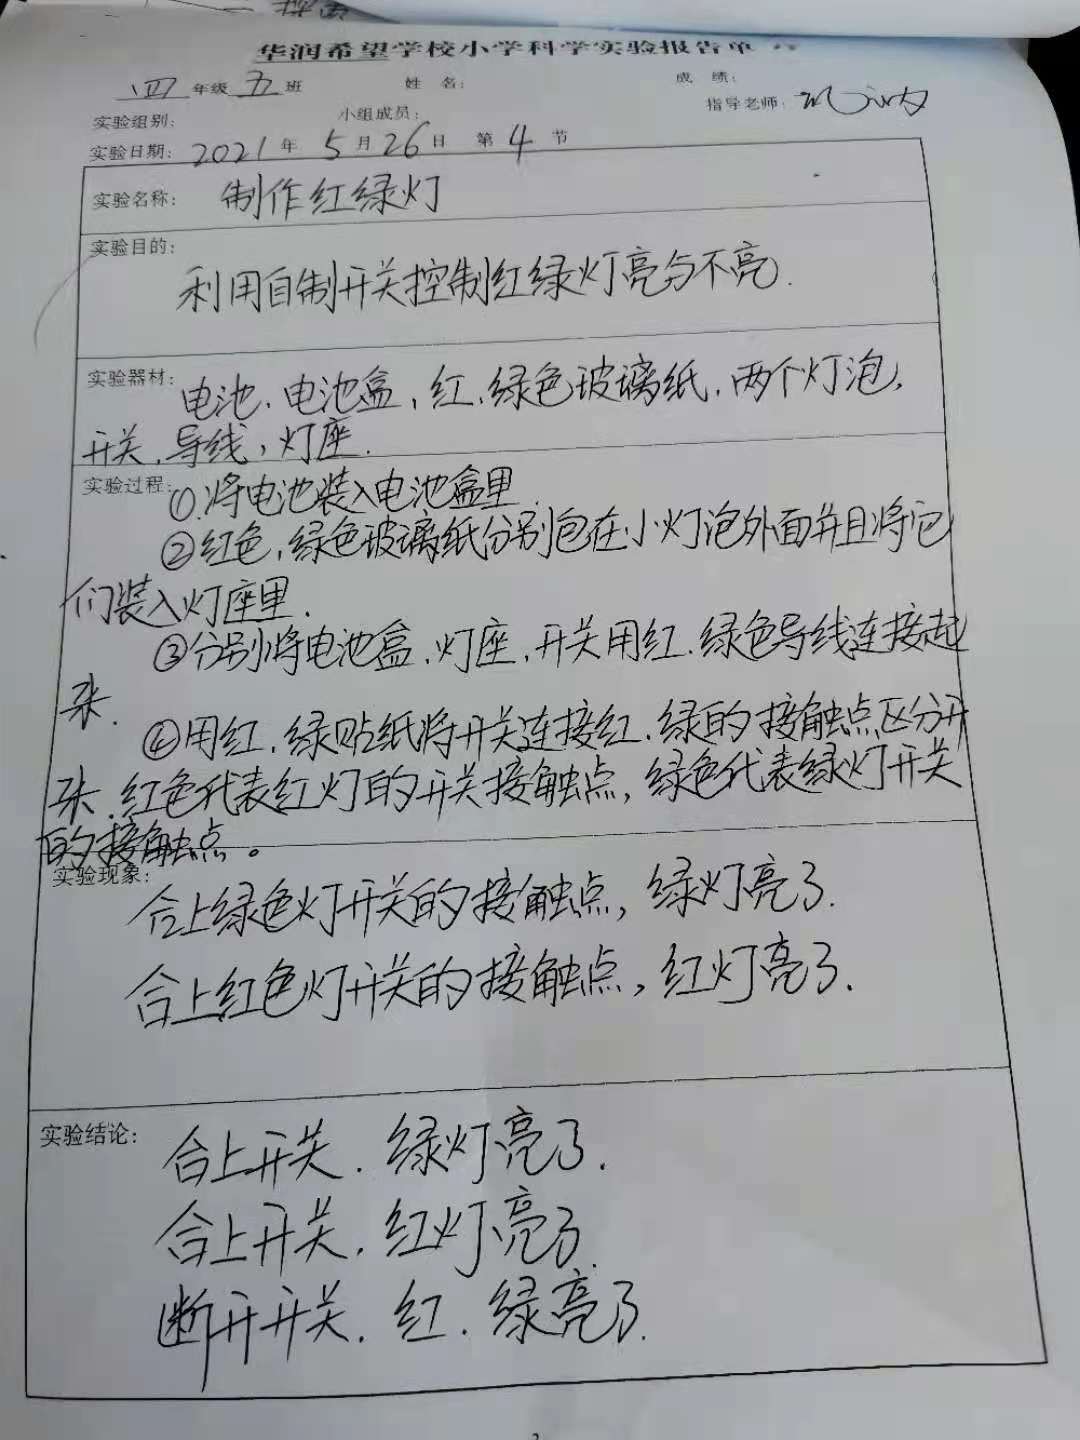 华润希望学校小学科学实验报告单
四年级五班 姓名: 成绩:
实验组别: 小组成员: 指导老师:
实验日期: 2021年5月26日 第4节
实验名称: 制作红绿灯
实验目的:
利用自制开关控制红绿灯亮与不亮.
实验器材: 电池、电池盒、红、绿色玻璃纸、两个灯泡、
开关、导线、灯座.
实验过程: ①将电池装入电池盒里.
②红色、绿色玻璃纸分别包在小灯泡外面并且将它
们装入灯座里.
③分别将电池盒、灯座、开关用红、绿色导线连接起
来.
④用红、绿贴纸将开关连接红、绿的接触点区分开
来.红色代表红灯的开关接触点,绿色代表绿灯开关
的接触点。
实验现象:
合上绿色灯开关的接触点,绿灯亮了.
合上红色灯开关的接触点,红灯亮了.
实验结论: 合上开关.绿灯亮了.
合上开关.红灯亮了.
断开开关.红.绿亮了.